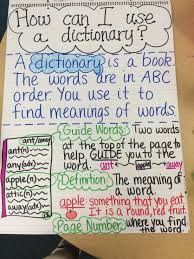 How can I use
a dictionary?
A dictionary is a book.
The words are in ABC
order. You use it to
find meanings of words.
ant/away
ant(n)
any(adv)
apple(n)
attic(n)
away(adv)
Guide Words: Two words
at the top of the page to
help GUIDE you to the
word. ant away
Definition: The meaning of
a word.
apple: something that you eat
It is a round, red fruit.
Page Number: where you find
the word.